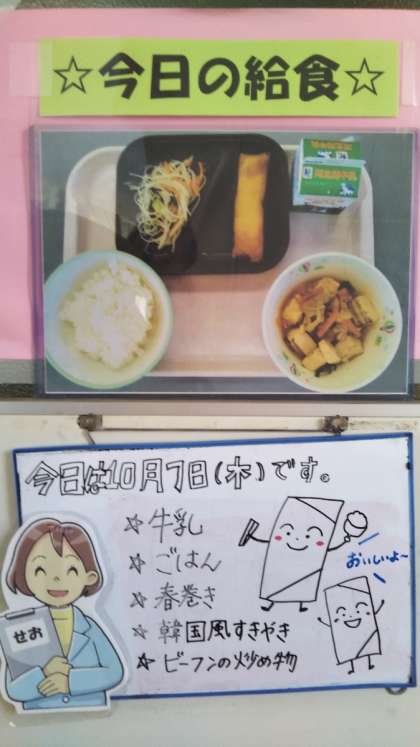 ☆今日の給食☆
今日は10月7日(木)です。
☆牛乳
☆ごはん
☆春巻き
☆韓国風すきやき
☆ビーフンの炒め物
おいしいよ〜
せお